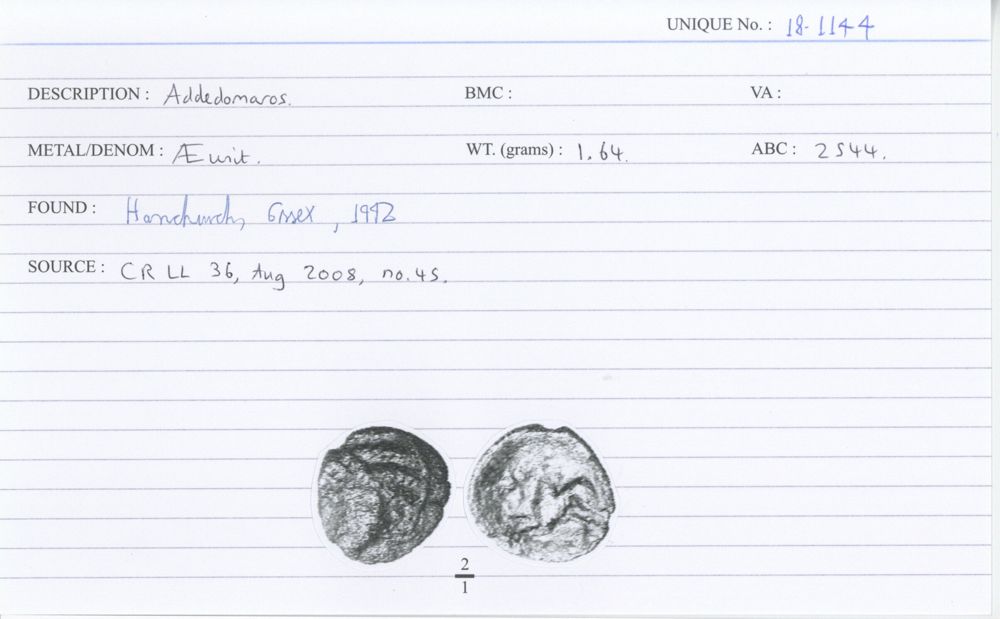 UNIQUE No. : 18-1144
DESCRIPTION : Addedomaros. BMC : VA :
METAL/DENOM : Æ unit. WT. (grams) : 1.64. ABC : 2544.
FOUND : Hornchurch, Essex, 1992
SOURCE : CR LL 36, Aug 2008, no.45.
2
1